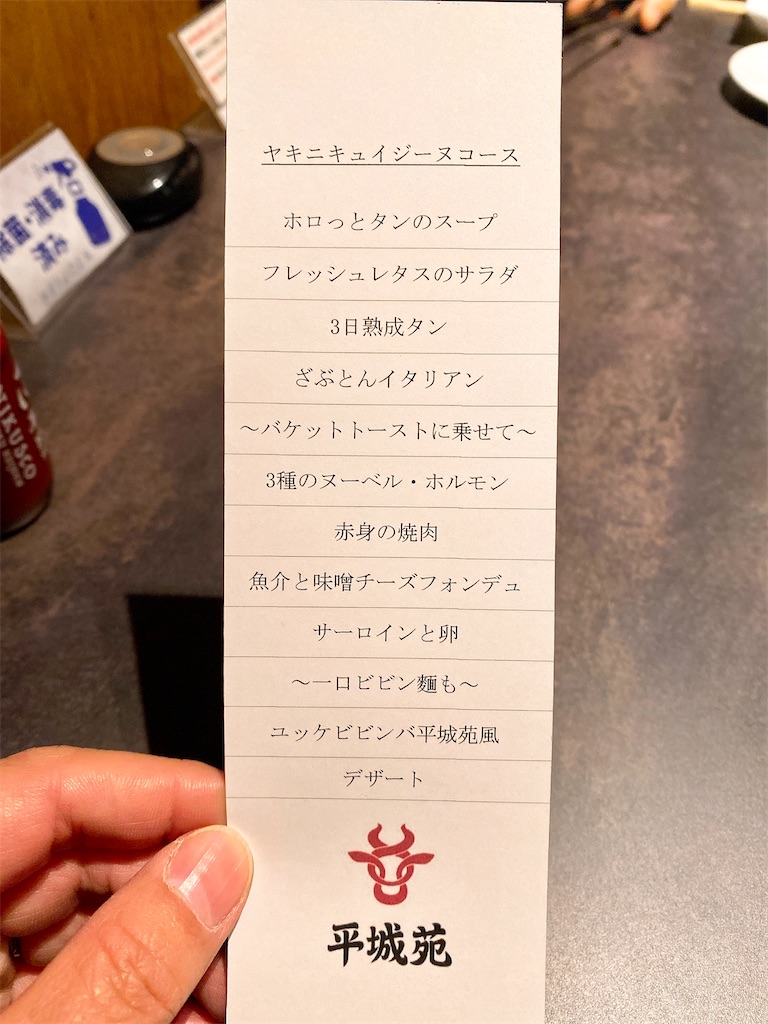 ヤキニキュイジーヌコース
ホロっとタンのスープ
フレッシュレタスのサラダ
3日熟成タン
ざぶとんイタリアン
～バケットトーストに乗せて～
3種のヌーベル・ホルモン
赤身の焼肉
魚介と味噌チーズフォンデュ
サーロインと卵
～一口ビビン麵も～
ユッケビビンバ平城苑風
デザート
平城苑